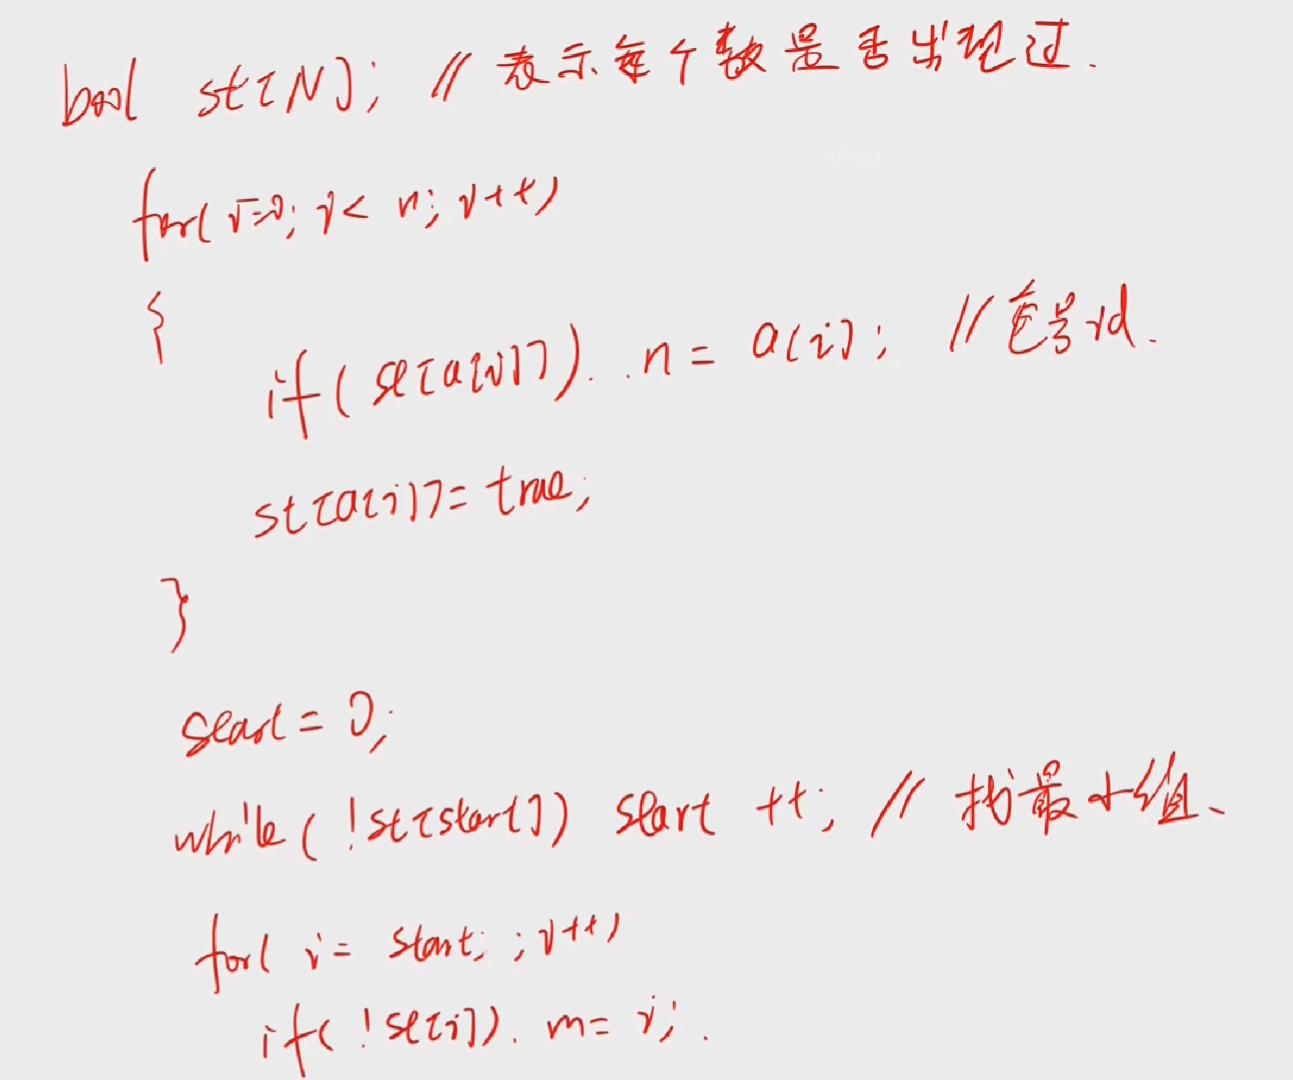 bool st[N]; // 表示每个数是否出现过.
for(i=0; i< n; i++)
{
if( st[a[i]]) n = a[i]; // 重号id.
st[a[i]]= true;
}
start = 0;
while( !st[start]) start ++; // 找最小值、
for( i= start; ; i++)
if( !st[i]). m= i;.